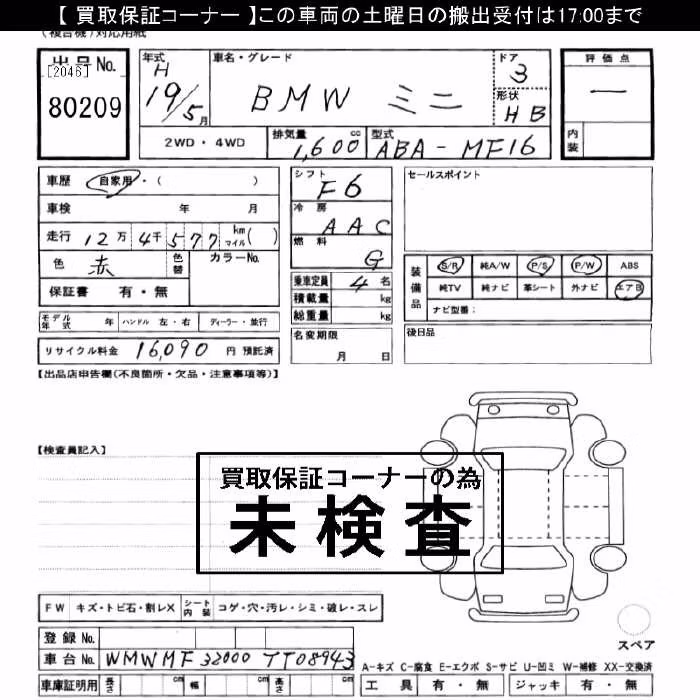 【 買取保証コーナー 】この車両の土曜日の搬出受付は17:00まで
(複合機)対応用紙
出品No. [2046] 80209
年式 H 19/5月
車名・グレード BMW ミニ
ドア 3
形状 HB
評価点 ー
内装
2WD・4WD
排気量 1,600 cc
型式 ABA-MF16
車歴 自家用・( )
車検 年 月
走行 12万4千577 km マイル ( )
色 赤 色替 カラーNo.
保証書 有・無
シフト F6
冷房 AAC
燃料 G
乗車定員 4 名
積載量 kg
総重量 kg
セールスポイント
装備品 S/R 純A/W P/S P/W ABS
純TV 純ナビ 革シート 外ナビ エアB
ナビ型番:
モデル年式 年 ハンドル 左・右 ディーラー・並行
名変期限 月 日
後日品
リサイクル料金 16,090 円 預託済
【出品店申告欄(不良箇所・欠品・注意事項等)】
【検査員記入】
買取保証コーナーの為
未検査
FW キズ・トビ石・割レX シート内装 コゲ・穴・汚レ・シミ・破レ・スレ
スペア
登録 No.
車台 No. WMWMF32000TT08943
A-キズ C-腐食 E-エクボ S-サビ U-凹ミ W-補修 XX-交換済
車庫証明用 長さ cm 幅 cm 高さ cm
工具 有・無 ジャッキ 有・無